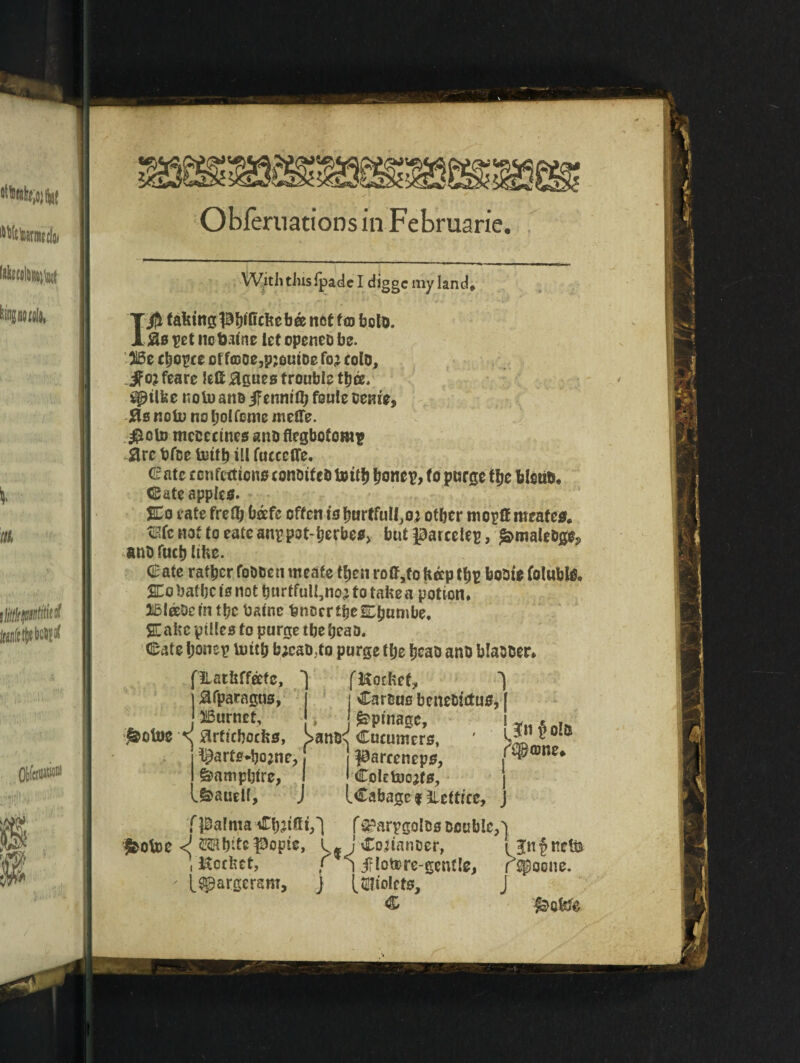 Obseruations in Februarie.
With this spade I digge my land,
IN taking Phisicke be not too bold.
As yet no vaine let opened be.
Be choyce of foode, prouide for cold,
For feare lest Agues trouble thee.
Milke now and Fennish foule denie,
As now no holsome messe.
Now medecines and flegbotomy
Are vsde with ill successe.
Eate confections condited with honey, to purge the bloud.
Eate apples.
To eate fresh beefe often is hurtfull, or other moyst meates.
Vse not to eate any pot-herbes, but Parceley, Smaledge,
and such like.
Eate rather sodden meate then rost, to keep thy bodie soluble.
To bathe is not hurtfull, nor to take a potion.
Bleede in the vaine vnder the Thumbe.
Take pilles to purge the head.
Eate honey with bread, to purge the head and bladder.
Sowe { Larksfeete, Asparagus, Burnet, Artichocks, Harts-horne, Samphire, Sauell, } and { Rocket, Cardus benedictus, Spinage, Cucumers, Parceneps, Coleworts, Cabage & Lettice, } In ye old Moone.
Sowe { Palma Christi, White Popie, Rocket, Margeram, } & { Marygolds double, Coriander, Flowre-gentle, Violets, } In ye new Moone.
C Sowe